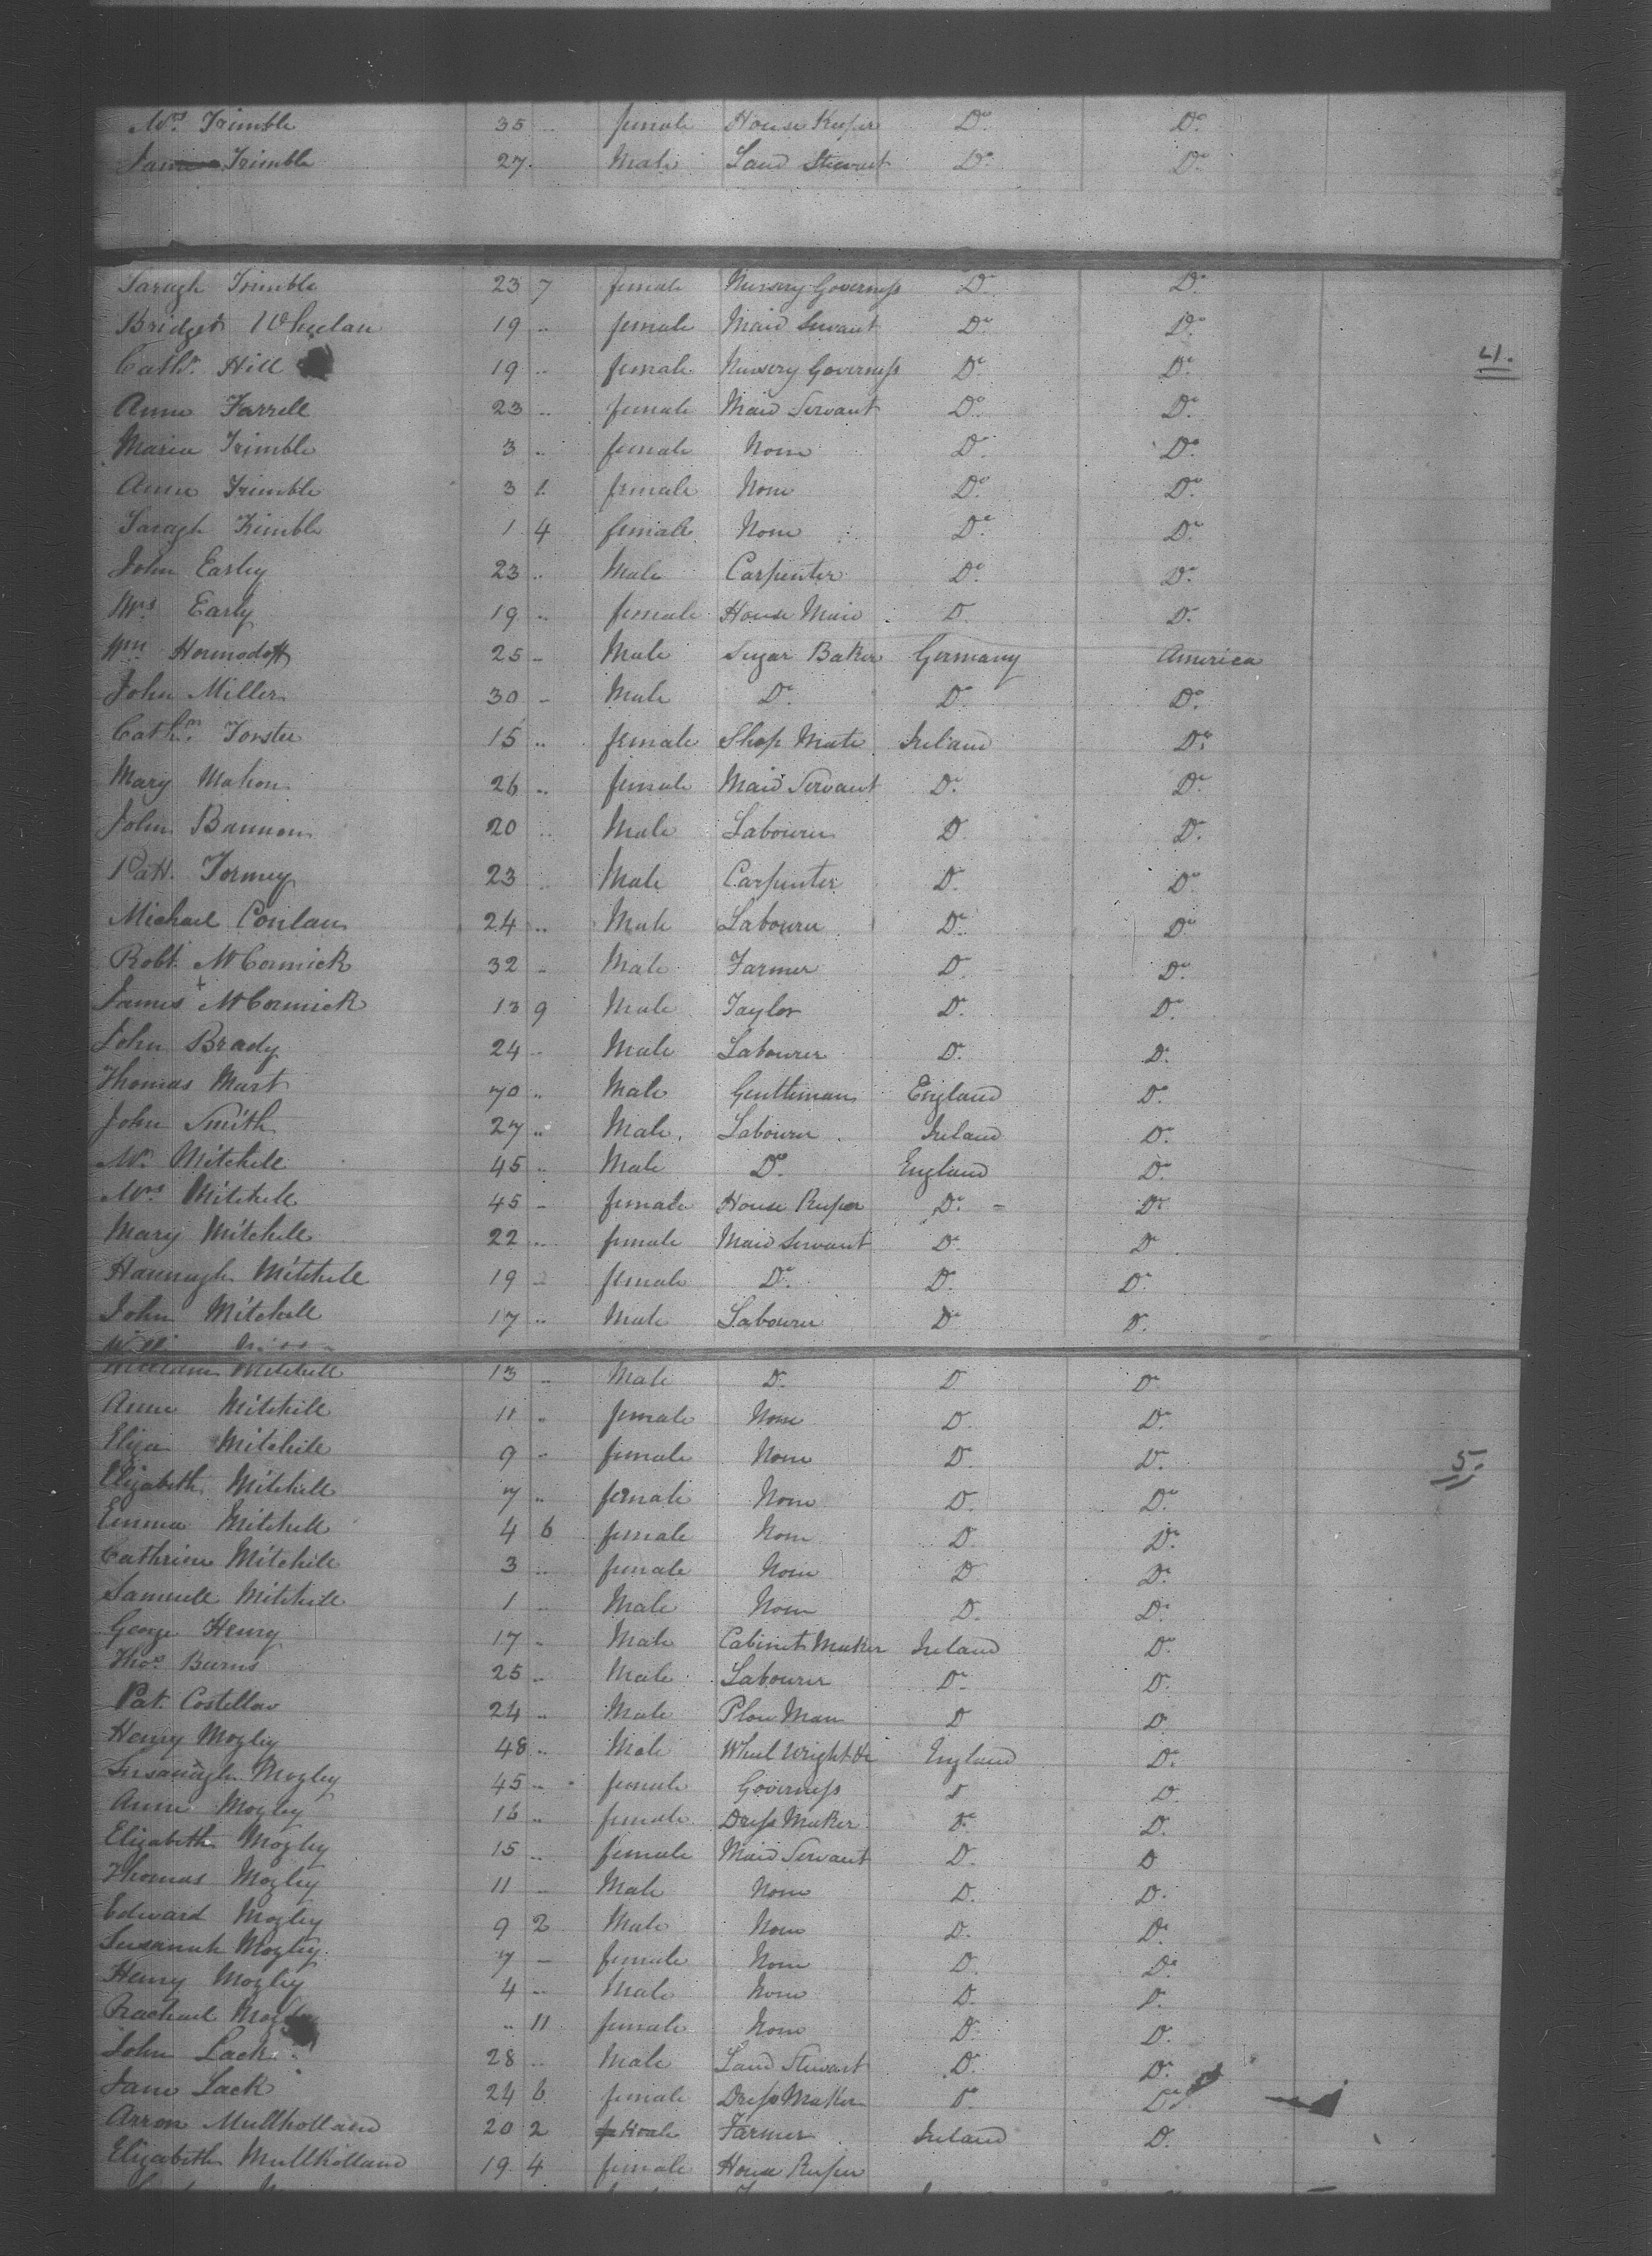 Mrs Trimble 35 .. female House Keeper Do. Do.
James Trimble 27. Male Land Stewart Do. Do.
Saragh Trimble 23 7 female Nursery Governess Do. Do.
Bridget Whelan 19 .. female Maid Servant Do. Do.
Cathn. Hill 19 .. female Nursery Governess Do. Do.
4.
Anne Farrell 23 .. female Maid Servant Do. Do.
Maria Trimble 3 .. female None Do. Do.
Anne Trimble 3 female None Do. Do.
Saragh Trimble 1 4 female None Do. Do.
John Earley 23 .. Male Carpenter Do. Do.
Mrs Early 19 .. female House Maid D. D.
Wm 25 - Male Sugar Baker Germany America
John Miller 30 - Male Do. Do. Do.
Cathn. Forster 15 .. female Shop Mate Ireland Do.
Mary Mahon 26 .. female Maid Servant Do. Do.
John Bannon 20 .. Male Labourer D. D.
Patt. Tormey 23 .. Male Carpenter D. Do.
Michael Conlan 24 .. Male Labourer Do. Do.
Robt. McCormick 32 - Male Farmer D. Do.
James McCormick 13 9 Male Taylor D. D.
John Brady 24 .. Male Labourer D. D.
Thomas Mart 70 .. Male Gentleman England D.
John Smith 27 .. Male. Labourer Ireland D.
Mr. Mitchell 45 .. Male Do. England D.
Mrs Mitchell 45 - female House Keeper Do. - Do
Mary Mitchell 22 .. female Maid Servant D. D
Hannagh Mitchell 19 .. female Do. D. D.
John Mitchell 17 .. Male Labourer D D.
William Mitchell 13 .. Male D. D D.
Anne Mitchell 11 .. female None D. D.
Eliza Mitchell 9 - female None D. D.
5.
Elizabeth Mitchell 7 .. female None D. Do.
Emma Mitchell 4 6 female None D. Do.
Cathrine Mitchell 3 .. female None D D.
Samuell Mitchell 1 .. Male None D. D.
George Henry 17 .. Male Cabinet Maker Ireland D.
Thos Burns 25 .. Male Labourer D. D.
Pat. Costellow 24 .. Male Plow Man D D.
Henry Mozley 48 .. Male Wheel Wright England D.
Susanagh Mozley 45 .. female Governess D D.
Anne Mozley 16 .. female Dress Maker D. D.
Elizabeth Mozley 15 .. female Maid Servant D. D
Thomas Mozley 11 .. Male None D. D.
Edward Mozley 9 2 Male None D. D.
Susannah Mozley 7 - female None D. D.
Henry Mozley 4 .. Male None D. D.
Rachael Mozley .. 11 female None D. D.
John Lack 28 .. Male Land Stewart D. D.
Jane Lack 24 6 female Dress Maker D. D.
Arron Mullholland 20 2 Male Farmer Ireland D.
Elizabeth Mullholland 19 4 female House Keeper